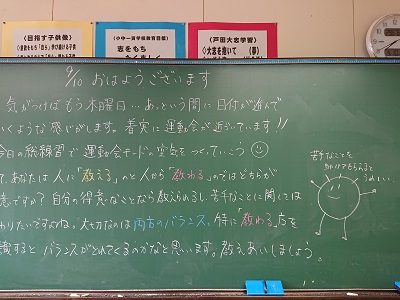 《目指す子供像》
小中一貫学校教育目標
志をもち
《戸田大志学習》
《大志を抱いて
9/10 おはようございます
気がつけばもう木曜日…あっという間に日付が進んで
いくような感じがします。着実に運動会が近づいています!!
今日の総練習で運動会モードの空気をつくっていこう
て、あなたは人に「教える」のと人から「教わる」のではどちらが
意ですか？自分の得意なことなら教えられるし、苦手なことに関しては
わりたいですよね。大切なのは両方のバランス。特に教わる方を
識するとバランスがとれてくるのかなと思います。教えあいしましょう。
苦手なことを
助けてもらえると
うれしい